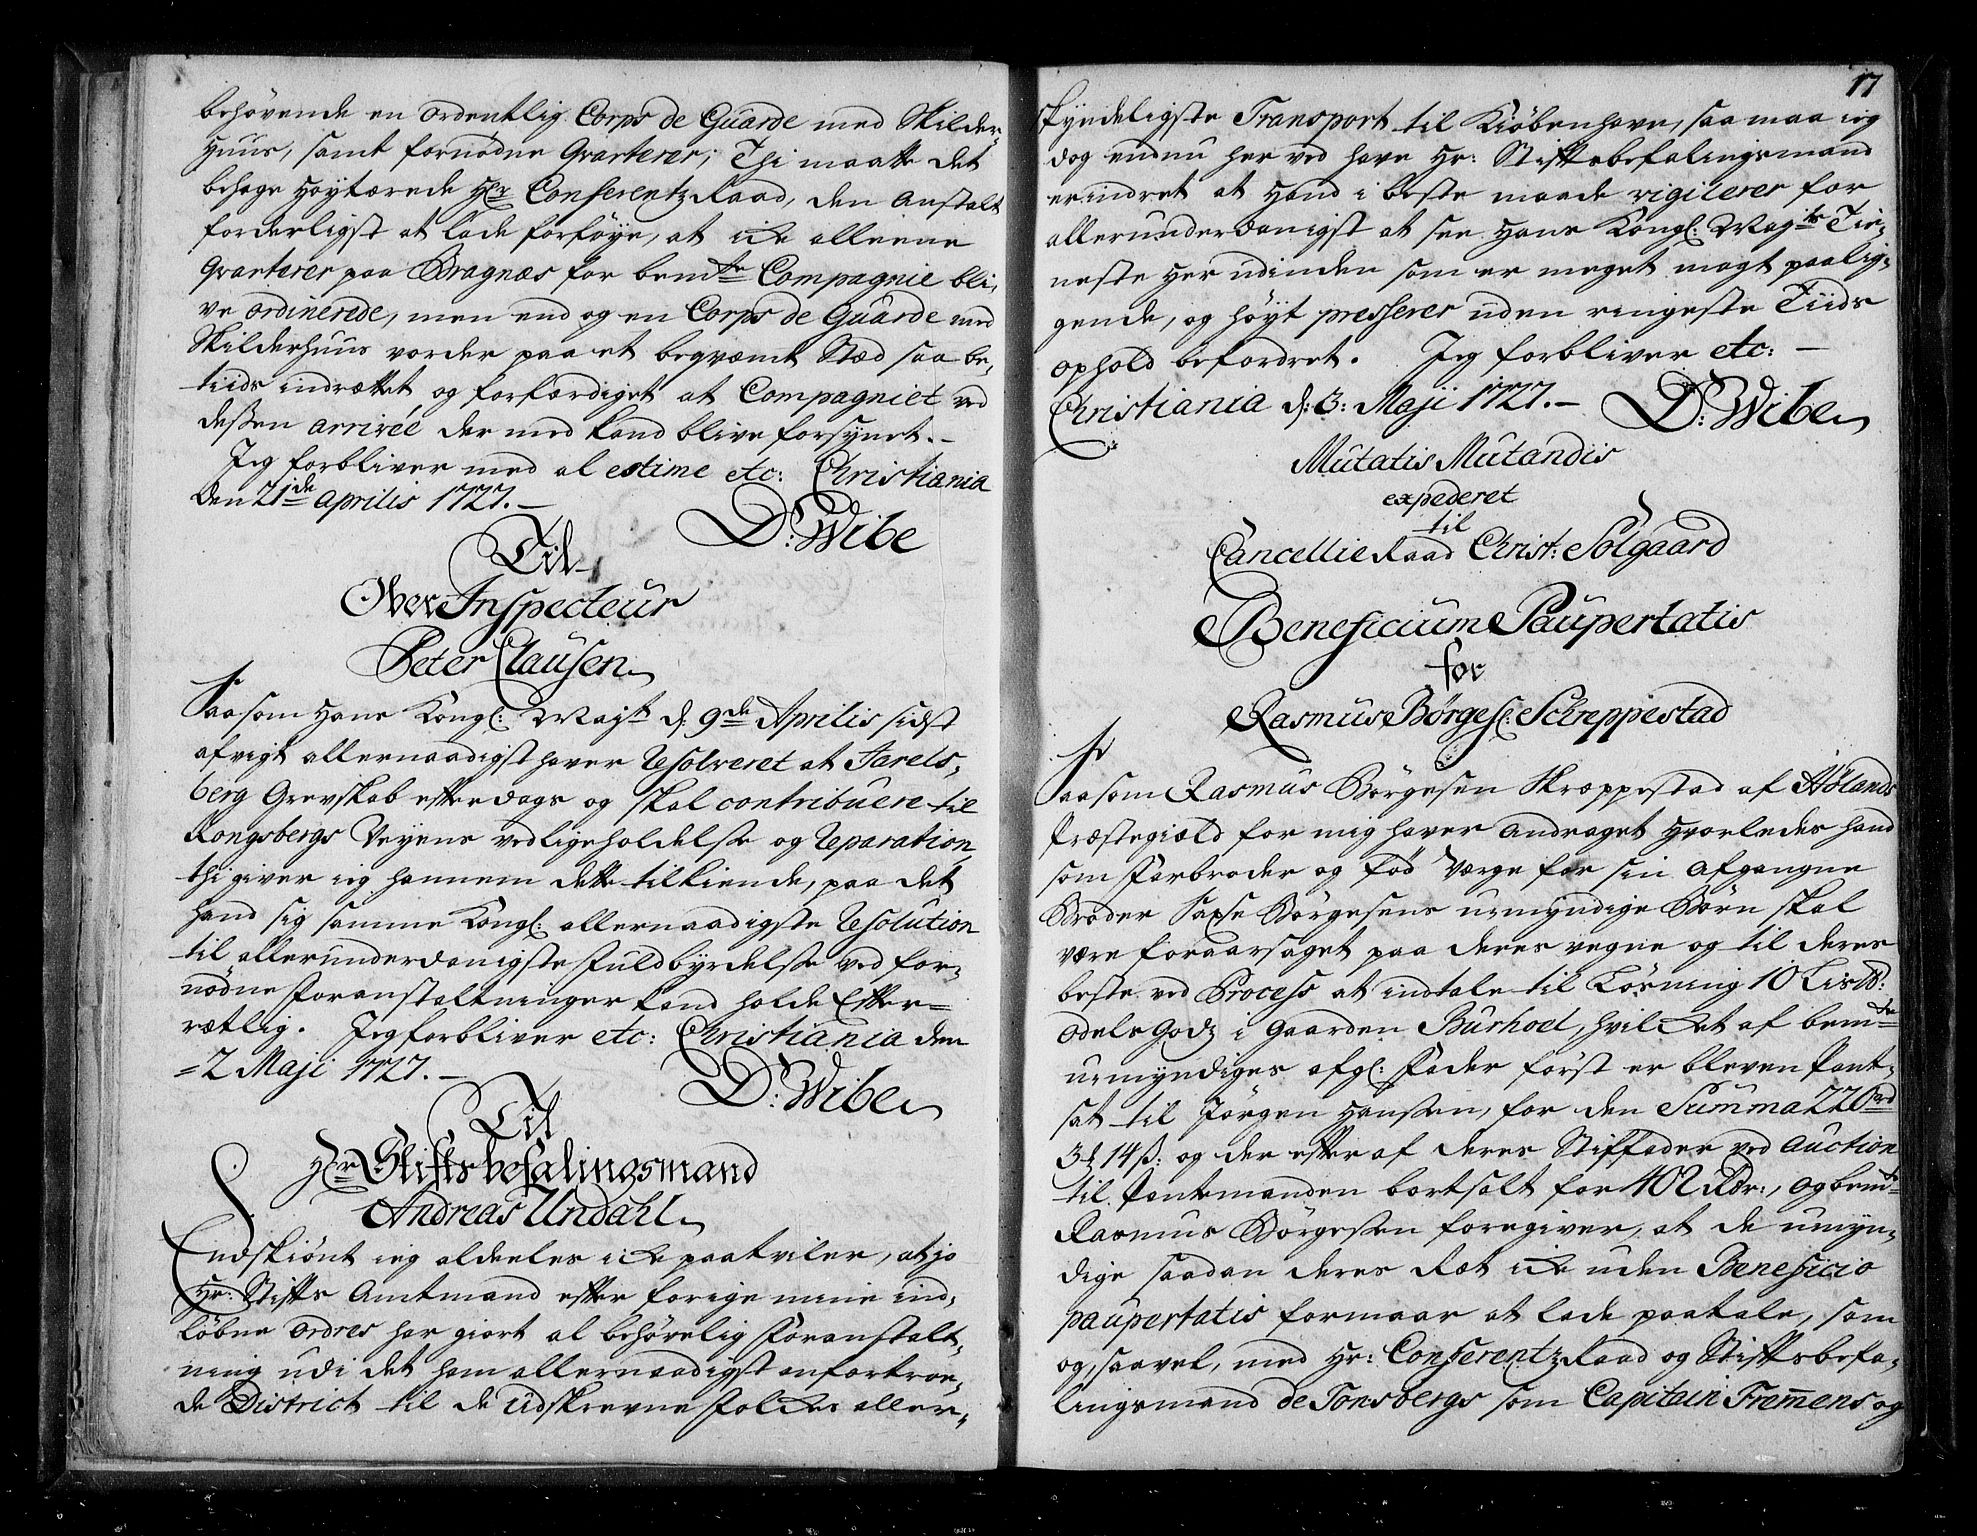 behövende en ordentlig Corps de Guarde med Skilder-
Huus, samt fornödne Qvarterer; Thi maatte det
behage Höytærede Hr Conferentz Raad, den Anstalt
forderligst at lade forföye, at icke alleene
Qvarterer paa Bragnæs for bemte Compagnie bli-
ve ordinerede, men end og en Corps de Guarde med
Skilderhuus vorder paa et beqvæmt Stæd saa be-
tiids indrættet og forfærdiget at Compagniet ved
dessen arriveé der med kand blive forsynet.-
Jeg forbliver med al estime etc: Christiania
den 21de Aprilis 1727.-
D: Wibe
Til
Ober Inspecteur
Peter Clausen
Saasom Hans Kongl: Mayt d: 9de Aprilis sidst
afvigt allernaadigst haver Resolveret at Jarels-
berg Grevskab efter dags og skal contribuere til
Kongsbergs Veyens vedligeholdelse og Reparation,
thi giver ieg hannem dette tilkiende, paa det
hand sig samme Kongl: allernaadigste Resolution
til allerunderdanigste Fuldbyrdelse ved for-
nödne Foranstaltninger kand holde Efter=
rætlig. Jeg forbliver etc: Christiania den
=2 Maji 1727.-
D: Wibe
Til
Hr Stiftsbefalingsmand
Andreas Undahl
Endskiönt ieg aldeeles icke paatviler, at jo
Hr: Stifts Amtmand efter forige mine ind-
löbne ordres har giort al behörelig Foranstalt-
ning udi det ham allernaadigst anfortroe-
de District til de Udskrevne Folckes aller-
17
skyndeligste Transport til Kiöbenhavn, saa maa ieg
dog endnu her ved have Hr: Stiftsbefalingsmand
erindret at Hand i beste maade vigilerer for
allerunderdanigst at see Hans Kongl: Majts Tie-
neste her udinden som er meget magt paalig-
gende, og höyt presserer uden ringeste Tiids
ophold befordret. Jeg forbliver etc: -
Christiania d: 3: Maji 1727.-
D: Wibe
Mutatis Mutandis
expederet
til
Cancellie Raad Christ: Solgaard
Beneficium Paupertatis
for
Rasmus Börges: Schreppestad
Saasom Rasmus Börgesen Skreppestad af Hölands
Præstegield for mig haver andraget Hvorledes hand
som Farbroder og föd Værge for sin afgangne
Broder Saxe Börgesens umyndige Börn skal
være foraarsaget paa deres vegne og til deres
beste ved Process at indtale til Lösning 10 Lis℔:
Odels Godz i Gaarden Burhoel, hvilcket af bemte
umyndiges afgl: Fader först er bleven Pant-
sat til Jörgen Hansen, for den Summa 226 rd
3 ₰ 14 ß: og der efter af deres Stiffader ved Auction
til Pantemanden bortsolt for 402 Rdr:, og bemte
Rasmus Börgesen foregiver, at de umyn-
dige saadan deres Ræt icke uden Beneficio
paupertatis formaar at lade paatale, som
og, saavel, med Hr: Conferentz Raad og Stiftsbefa-
lingsmand de Tonsbergs som Capitain Fremens og